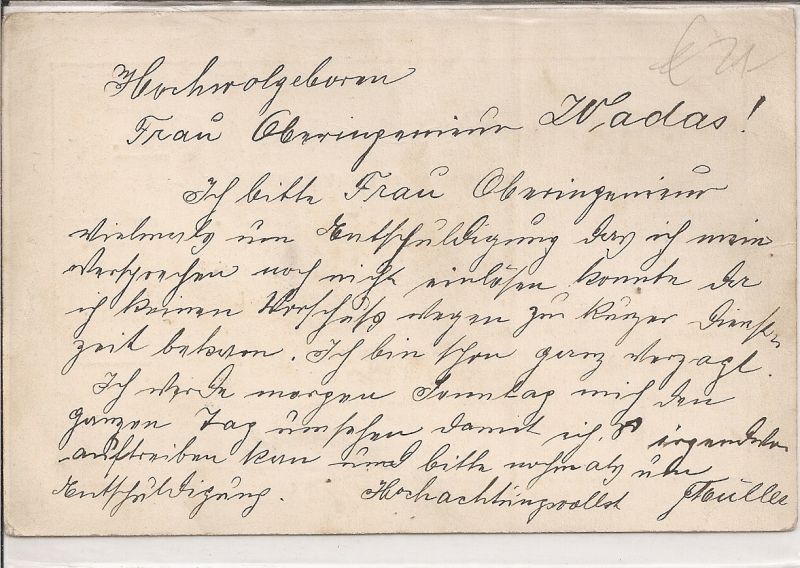 Hochwolgeboren
Frau Oberingenieur Wadas!
Ich bitte Frau Oberingenieur
vielmals um Entschuldigung das ich mein
versprechen noch nicht einlösen konnte da
ich keinen Vorschuß wegen zu kurzer Dienst-
zeit bekam. Ich bin schon ganz verzagt.
Ich werde morgen Sonntag mich den
ganzen Tag umsehen damit ich irgendwo
auftreiben kan und bitte nohmals um
Entschuldigung. Hochachtungsvollst Müller